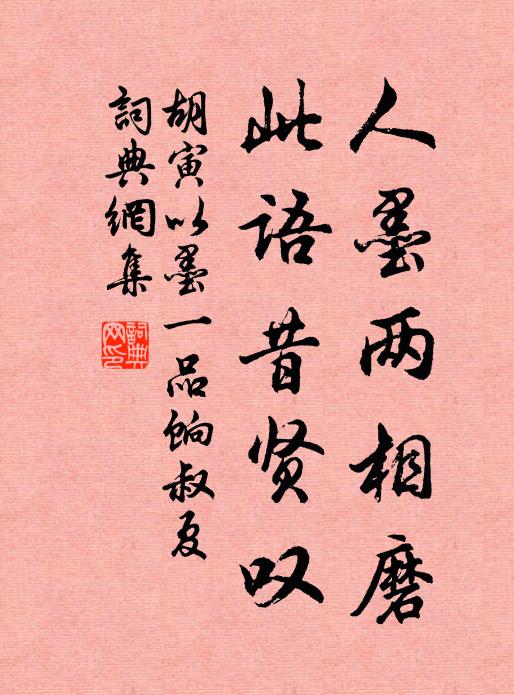 人墨两相磨
此语昔贤叹
胡寅以墨一品餉叔夏
詞典網集
詞典网印